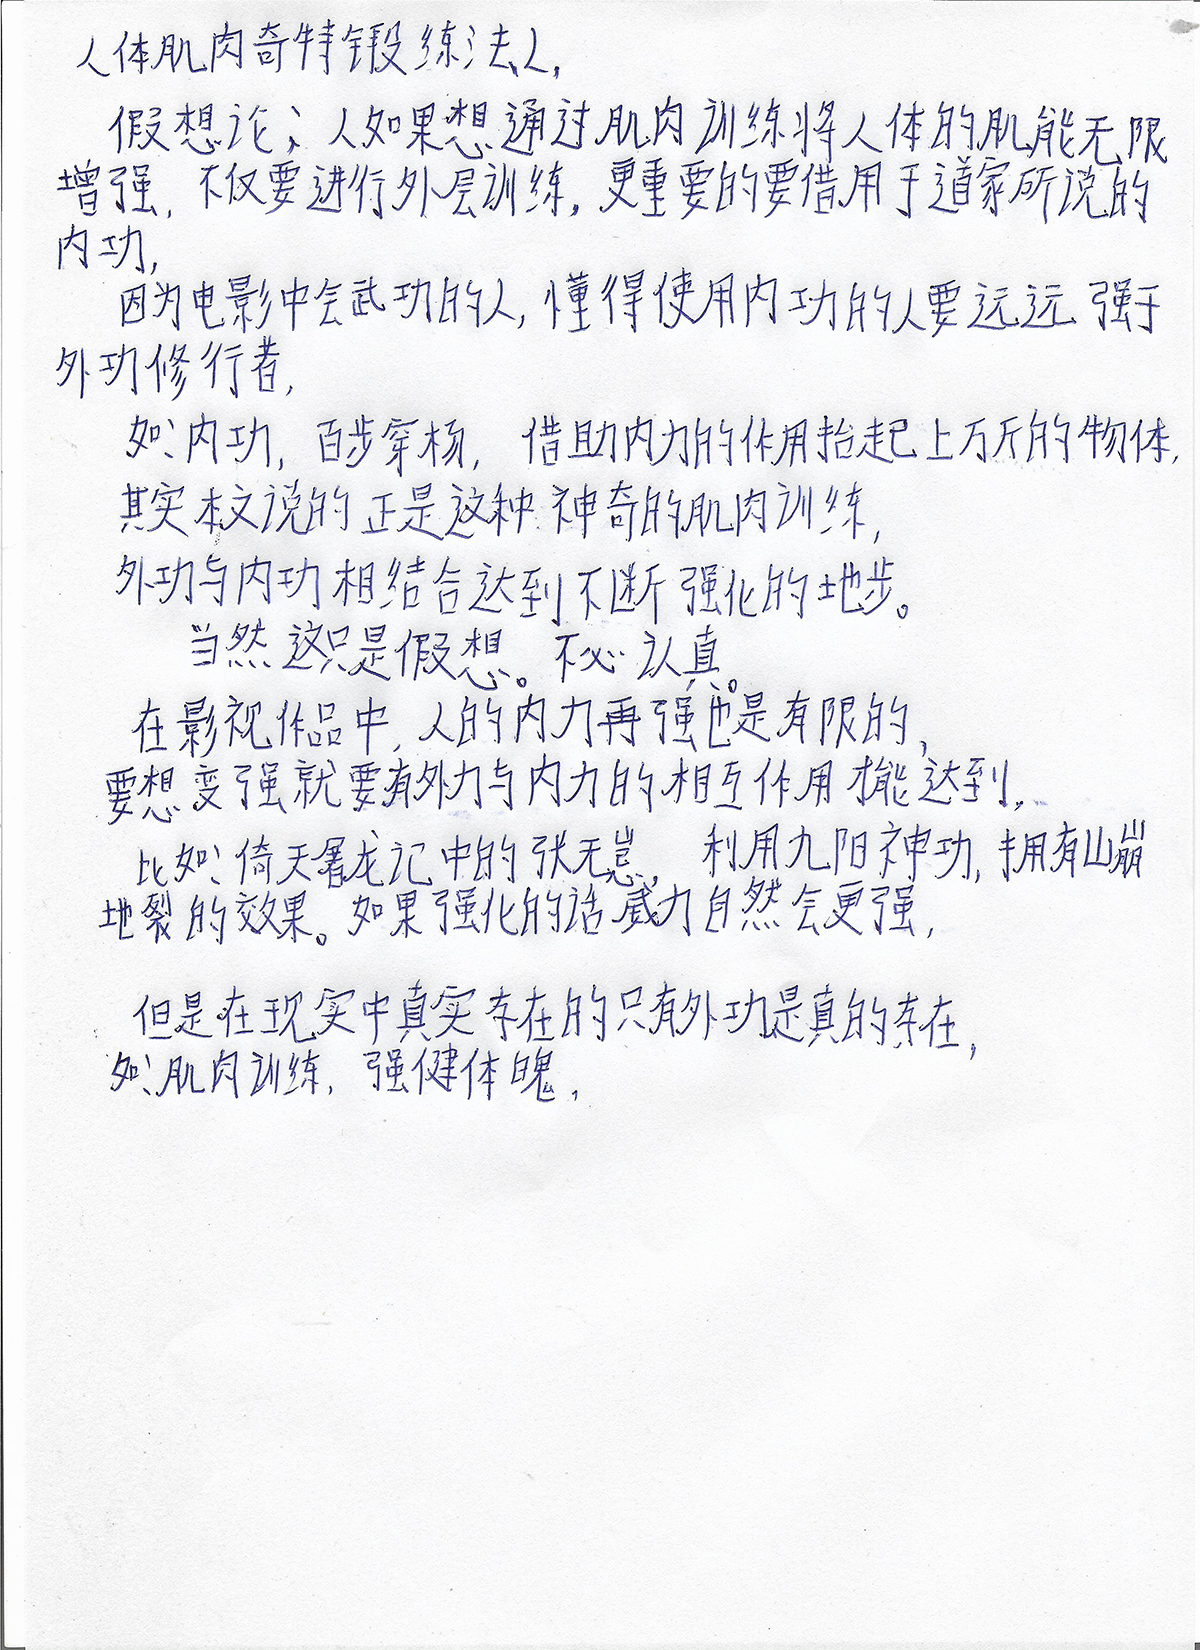 人体肌肉奇特锻练法人,
假想论:人如果想通过肌肉训练将人体的肌能无限
增强,不仅要进行外层训练,更重要的要借用于道家所说的
内功,
因为电影中会武功的人,懂得使用内功的人要远远强于
外功修行者,
如:内功,百步穿杨,借助内力的作用抬起上万斤的物体,
其实本文说的正是这种神奇的肌肉训练,
外功与内功相结合达到不断强化的地步。
当然这只是假想。不必认真。
在影视作品中,人的内力再强也是有限的,
要想变强就要有外力与内力的相互作用才能达到,
比如:倚天屠龙记中的张无忌,利用九阳神功,拥有山崩
地裂的效果。如果强化的话威力自然会更强,
但是在现实中真实存在的只有外功是真的存在,
如:肌肉训练,强健体魄,